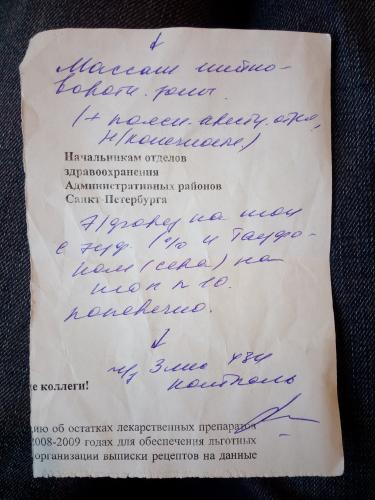 Массаж шейно-
воротн. зоны
(+ поясн.-крестц. отдел,
н/конечности)
Начальникам отделов
здравоохранения
Административных районов
Санкт-Петербурга
на шоп
с эуф. % и Тауфо-
ном (сева) на
шоп n 10.
поперечно.
ч/з 3 мес
контроль
де коллеги!
цию об остатках лекарственных препаратов
2008-2009 годах для обеспечения льготных
организации выписки рецептов на данные